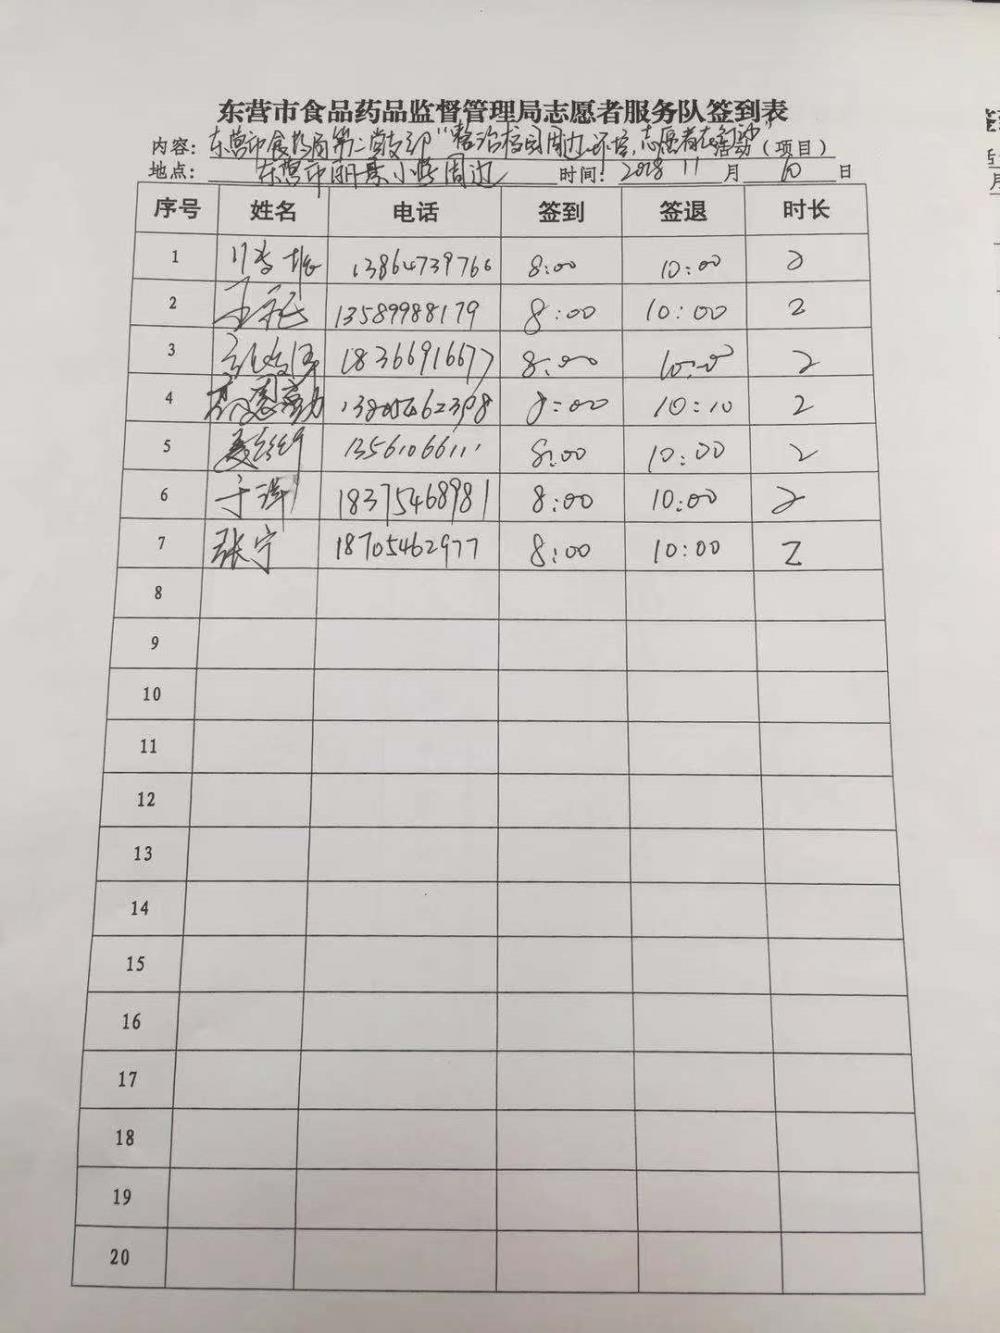 东营市食品药品监督管理局志愿者服务队签到表
内容：东营市食药局第二党支部"整治校园周边环境，志愿者在行动"活动（项目）
地点：东营市胜利小学周边 时间：2018 11 月 10 日
序号 姓名 电话 签到 签退 时长
1 13864739766 8:00 10:00 2
2 13589988179 8:00 10:00 2
3 18366916677 8:00 10:00 2
4 8:00 10:10 2
5 8:00 10:00 2
6 于洋 18375468981 8:00 10:00 2
7 张宁 18705462977 8:00 10:00 2
8
9
10
11
12
13
14
15
16
17
18
19
20